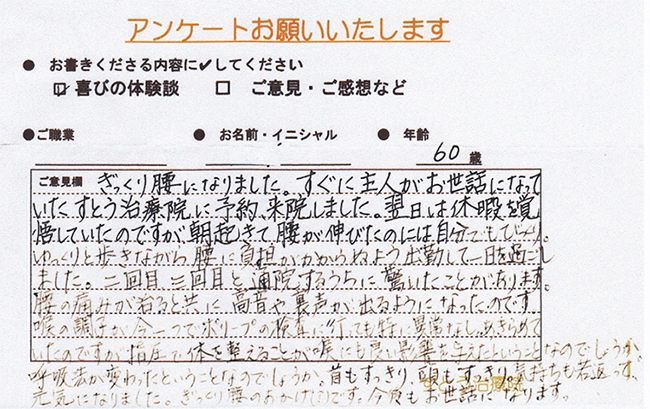 アンケートお願いいたします
● お書きくださる内容に✔してください
☑ 喜びの体験談 □ ご意見・ご感想など
●ご職業 ● お名前・イニシャル ● 年齢
60歳
ご意見欄 ぎっくり腰になりました。すぐに主人がお世話になって
いたすとう治療院に予約、来院しました。翌日は休暇を覚
悟していたのですが、朝起きて腰が伸びたのには自分でもびっくり。
ゆっくりと歩きながら腰に負担がかからぬよう出勤して一日を過ごし
ました。二回目、三回目と通院するうちに驚いたことがあります。
腰の痛みが治ると共に、高音や裏声が出るようになったのです。
喉の調子が今一つでポリープの検査に行っても特に異常なし、あきらめて
いたのですが指圧で体を整えることが喉にも良い影響を与えたということなのでしょうか。
呼吸法が変わったということなのでしょうか。首もすっきり、頭もすっきり、気持ちも若返って、
元気になりました。ぎっくり腰のおかげ(?)です。今後もお世話になります。